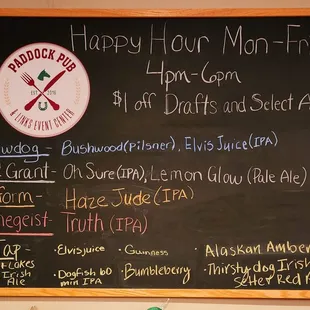 PADDOCK PUB
& LINKS EVENT CENTER
Happy Hour Mon-Fr
4pm-6pm
$1 off Drafts and Select A
wdog - Bushwood (Pilsner), Elvis Juice (IPA)
Grant - Oh Sure (IPA), Lemon Glow (Pale Ale)
form - Haze Jude (IPA)
negeist - Truth (IPA)
TAP - Elvisjuice · Guinness · Alaskan Amber
Flakes Irish Ale · Dogfish 60 min IPA · Bumbleberry · Thirsty dog Irish Setter Red A